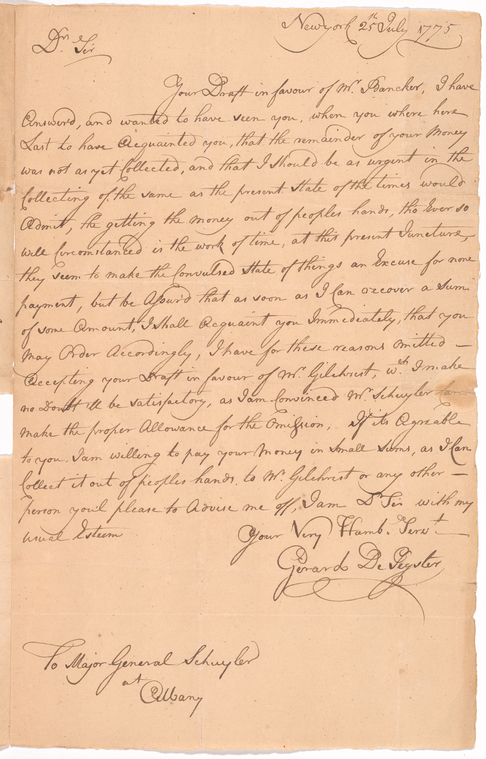 Newyork 25th July 1775
Dr. Sir
Your Draft in favour of Mr. Bancker, I have
Answerd, and wanted to have seen you, when you where here
Last to have Acquainted you, that the remainder of your Money
was not as yet Collected, and that I should be as urgent in the
Collecting of the same as the present State of the times would
Admit, the getting the money out of peoples hands, tho Ever so
well Circumstanced is the work of time, at this present Juncture,
they seem to make the Convulsed State of things an Excuse for none
payment, but be Asurd that as soon as I Can recover a Sum
of some Amount, I shall Acquaint you Immediately, that you
May Order Accordingly, I have for these reasons Omitted —
Accepting your Draft in favour of Mr. Gilchrist, wch. I make
no Doubt ill be satisfactory, as I am Convinced Mr. Schuyler
make the proper Allowance for the Omission,. If its Agreable
to you. I am willing to pay your Money in Small Sums, as I Can
Collect it out of peoples hands. to Mr. Gilchrist or any other —
person you'd please to Advise me off, I am Dr Sir with my
usual Esteem
Your Very Humb. Servt.
Gerard De Peyster
To Major General Schuyler
at
Albany